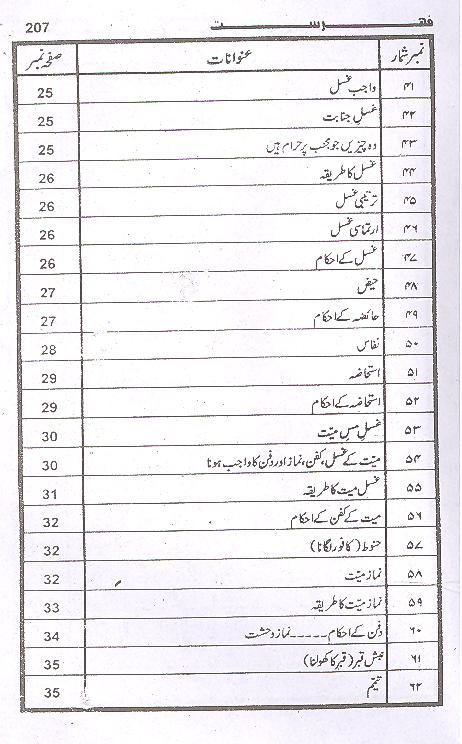 207 فہرست
نمبر شمار عنوانات صفحہ نمبر
۴۱ واجب غسل 25
۴۲ غسلِ جنابت 25
۴۳ وہ چیزیں جو مجنب پر حرام ہیں 25
۴۴ غسل کا طریقہ 26
۴۵ ترتیبی غسل 26
۴۶ ارتماسی غسل 26
۴۷ غسل کے احکام 26
۴۸ حیض 27
۴۹ حائضہ کے احکام 27
۵۰ نفاس 28
۵۱ استحاضہ 29
۵۲ استحاضہ کے احکام 29
۵۳ غسلِ مسِ میّت 30
۵۴ میّت کے غسل، کفن، نماز اور دفن کا واجب ہونا 30
۵۵ غسل میت کا طریقہ 31
۵۶ میت کے کفن کے احکام 32
۵۷ حنوط (کافور لگانا) 32
۵۸ نماز میّت 32
۵۹ نماز میّت کا طریقہ 33
۶۰ دفن کے احکام ۔۔۔۔۔ نماز وحشت 34
۶۱ نبش قبر (قبر کا کھولنا) 35
۶۲ تیمّم 35